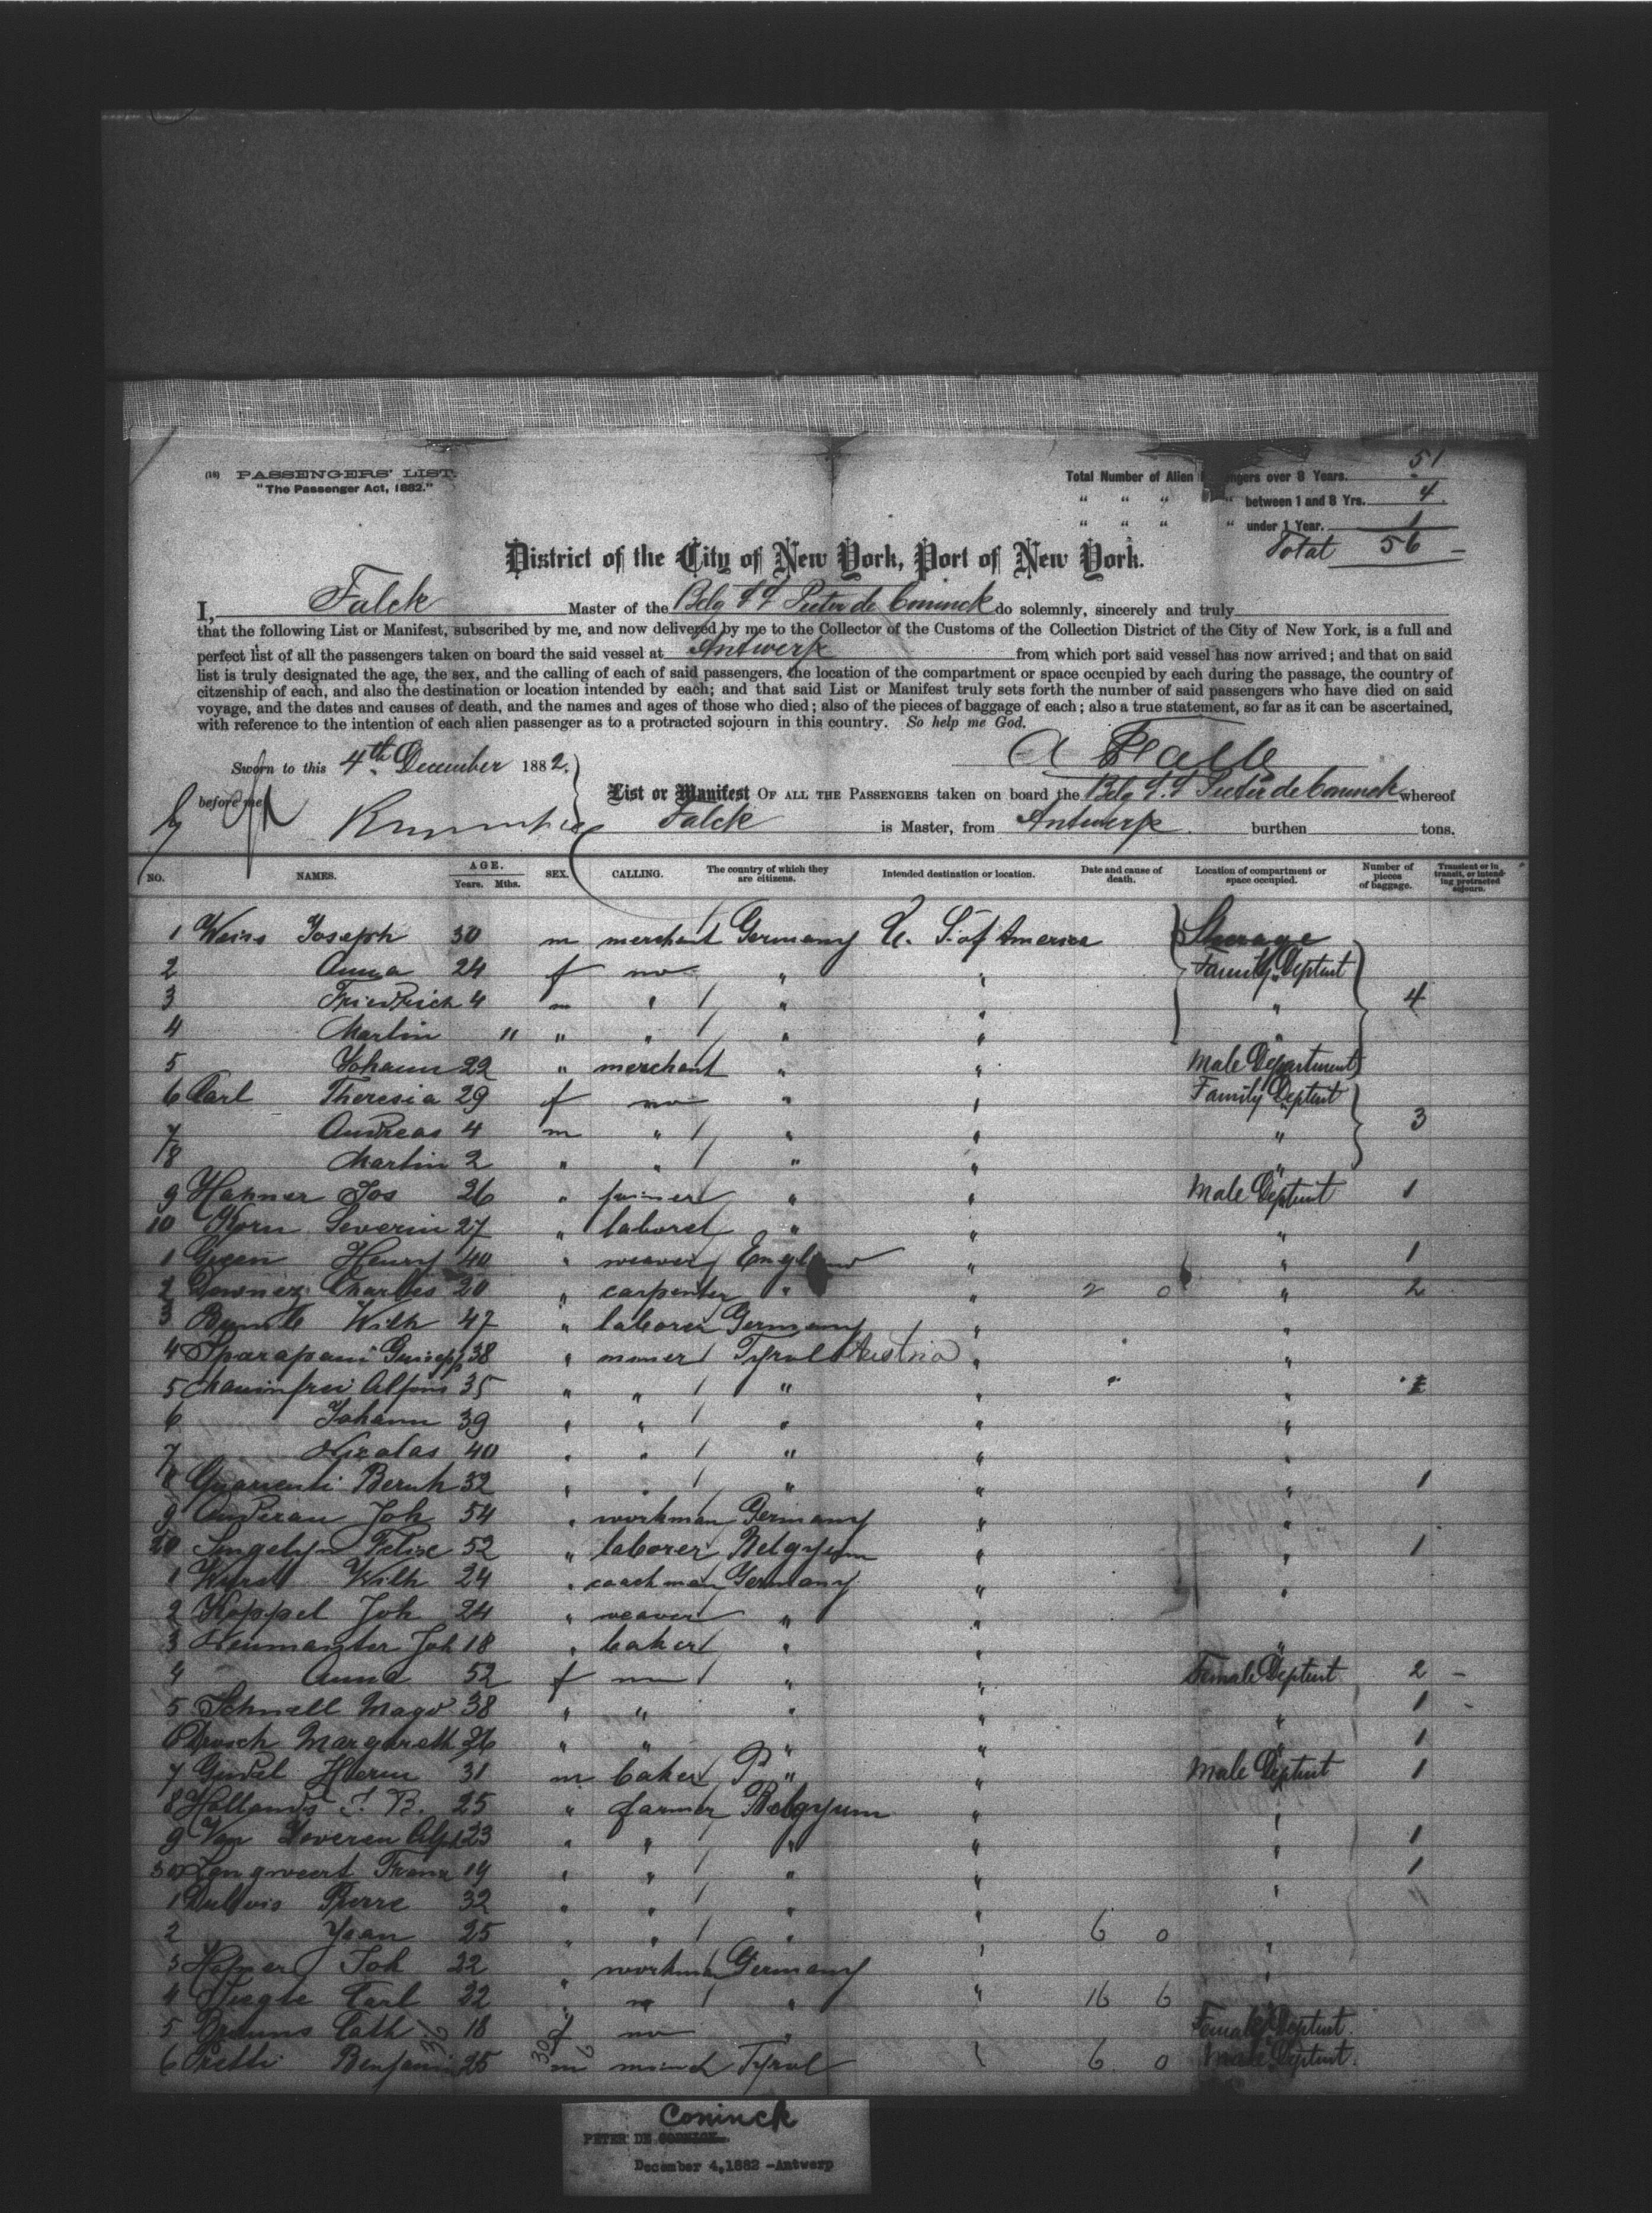 51
(18) PASSENGERS' LIST. Total Number of Alien engers over 8 Years.
"The Passenger Act, 1882." " " " " between 1 and 8 Yrs. 4.
" " " " under 1 Year. 1
Total 56 —
District of the City of New York, Port of New York.
I, Falck Master of the Belg SS Pieter de Coninck do solemnly, sincerely and truly
that the following List or Manifest, subscribed by me, and now delivered by me to the Collector of the Customs of the Collection District of the City of New York, is a full and
perfect list of all the passengers taken on board the said vessel at Antwerp from which port said vessel has now arrived; and that on said
list is truly designated the age, the sex, and the calling of each of said passengers, the location of the compartment or space occupied by each during the passage, the country of
citzenship of each, and also the destination or location intended by each; and that said List or Manifest truly sets forth the number of said passengers who have died on said
voyage, and the dates and causes of death, and the names and ages of those who died; also of the pieces of baggage of each; also a true statement, so far as it can be ascertained,
with reference to the intention of each alien passenger as to a protracted sojourn in this country. So help me God.
A Falck
Sworn to this 4th December 1882.
before me
List or Manifest OF ALL THE PASSENGERS taken on board the Belg S.S Pieter de Coninck whereof
Falck is Master, from Antwerp. burthen tons.
NO. NAMES. AGE. Years. Mths. SEX. CALLING. The country of which they are citizens. Intended destination or location. Date and cause of death. Location of compartment or space occupied. Number of pieces of baggage. Transient or in transit, or intending protracted sojourn.
1 Weiss Joseph 30 m merchant Germany U. S. of America Steerage
2 Anna 24 f no " " Family Deptmt
3 Friedrich 4 m " " " " 4
4 Martin 11 " " " " "
5 Johann 22 " merchant " " Male Department
6 Carl Theresia 29 f no " " Family Deptmt
7 Andreas 4 m " " " " 3
8 Martin 2 " " " " "
9 Hahner Jos 26 " " " Male Deptmt 1
10 Korn Severin 27 " laborer " " "
1 Green Henry 40 " weaver England " " 1
2 Charles 20 " carpenter " " 2 0 " 2
3 Wilh 47 " laborer Germany " "
4 Sparapani Guisepp 38 " miner Tyrol Austria " "
5 Alfons 35 " " " " " "
6 Johann 39 " " " " "
7 Nicolas 40 " " " " "
8 Guarienti Bernh 32 " " " " " 1
9 Joh 54 " workman Germany " "
20 Felixe 52 " laborer Belgyum " " 1
1 Wilh 24 " coachman Germany " "
2 Koppel Joh 24 " weaver " "
3 Joh 18 " baker " " "
4 Anna 52 f no " " Female Deptmt 2 —
5 Schnell Magd 38 " " " " " 1 -
6 Margareth 26 " " " " " 1
7 Herm 31 m baker " " Male Deptmt 1
8 Hollands J. B. 25 " farmer Belgyum " "
9 Van Alph 23 " " " " " 1
30 Franz 19 " " " " 1
1 Pierre 32 " " " " "
2 25 " " " 6 0 "
3 Joh 22 " workman Germany "
4 Carl 22 " " " 16 6 "
5 Cath 18 f no " Female Deptmt.
6 Benjamin 25 m Tyrol 6 0 Male Deptmt.
Coninck
PETER DE
December 4,1882 -Antwerp